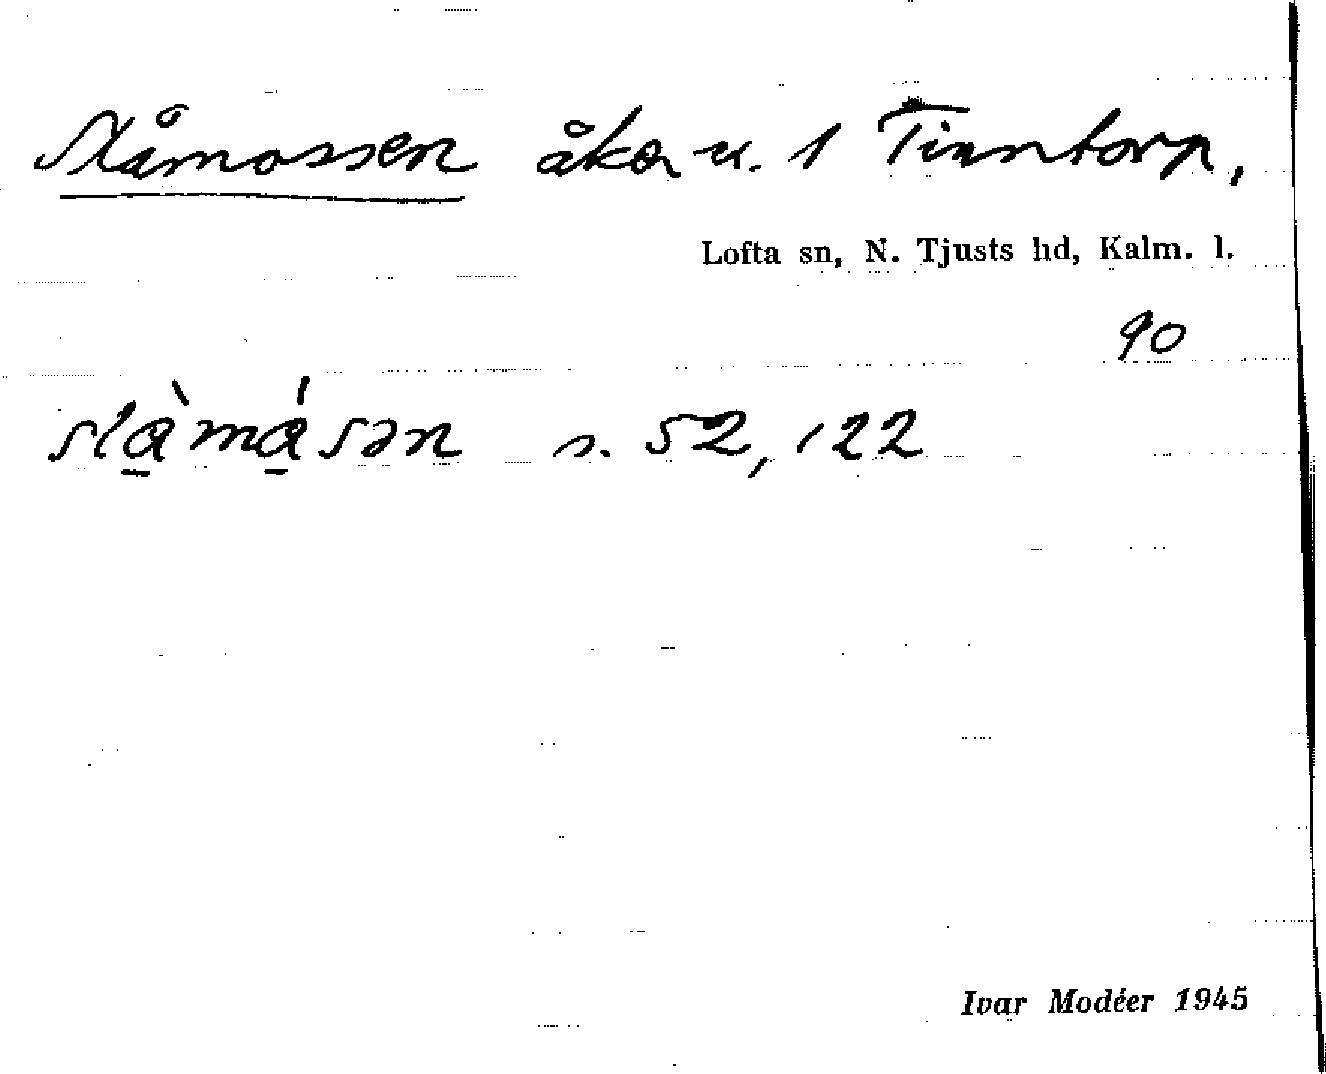 Slåmossen åker u. 1 Finntorp,
Lofta sn, N. Tjusts hd, Kalm. l.
90
slὰ̱mά̱sən s. 52, 122
Ivar Modéer 1945